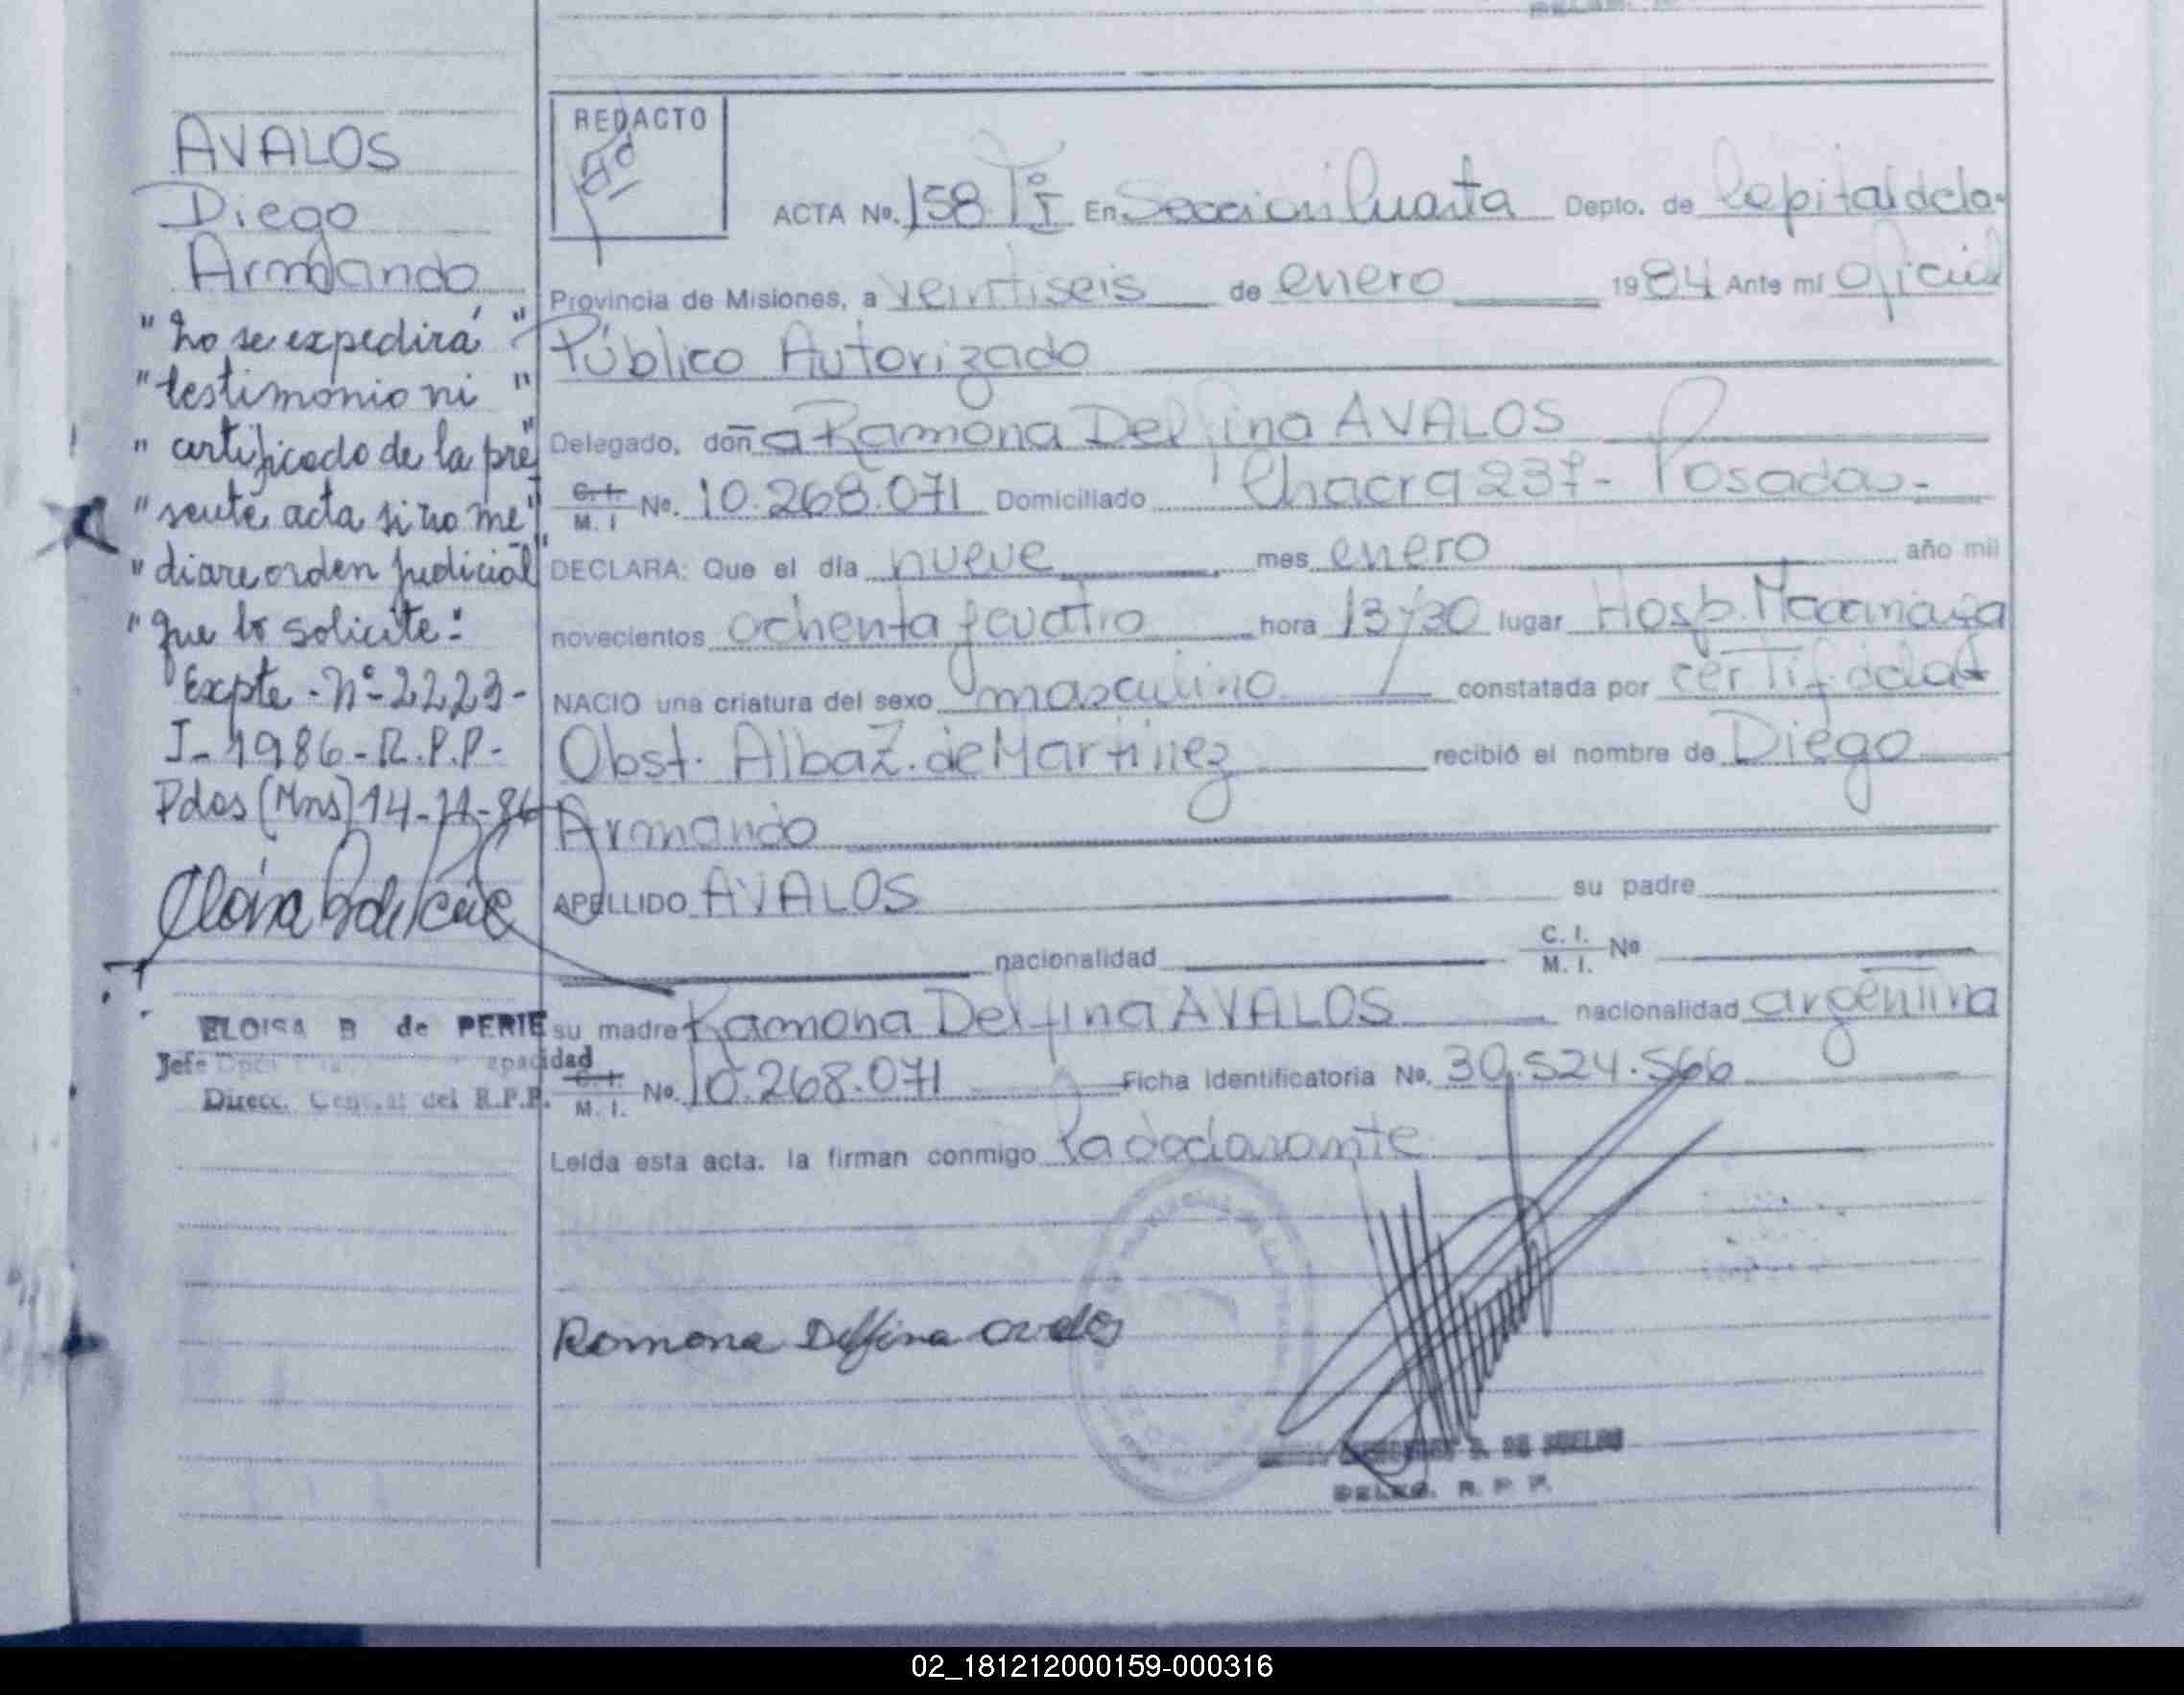 AVALOS
Diego
Armando
"no se expedirá"
"testimonio ni"
"certificado de la pre"
"sente acta si no me"
"diare orden judicial"
"que lo solicite."
Expte - Nº 2223-
J-1986-R.P.P-
Pdas (Mns) 14-11-86
ELOISA B de PERIE
Jefe
Direcc. Central del R.P.P.
REDACTO
ACTA No. 158 Tº I En Seccion Cuarta Depto. de Capital de la
Provincia de Misiones, a veintiseis de enero 1984 Ante mí Oficial
Público Autorizado
Delegado, doña Ramona Delfina AVALOS
C. I. M. I No. 10.268.071 Domiciliado Chacra 237- Posadas-
DECLARA: Que el día nueve mes enero año mil
novecientos ochenta y cuatro hora 13y30 lugar Hosp. Madariaga
NACIO una criatura del sexo masculino constatada por certif. de la
Obst. Alba Z. de Martinez recibió el nombre de Diego
Armando
APELLIDO AVALOS su padre
nacionalidad C. I. M. I. No
su madre Ramona Delfina AVALOS nacionalidad argentina
C. I. M. I. No. 10.268.071 Ficha Identificatoria No. 30.524.566
Leída esta acta. la firman conmigo la declarante
Romona Delfina avalos
DELEG. R. P. P.
02_181212000159-000316